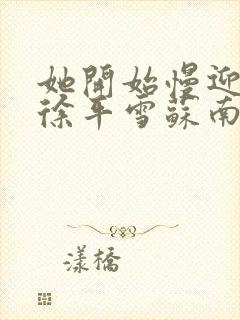 她開始慢迎
徐年雪蘇南
漾橋